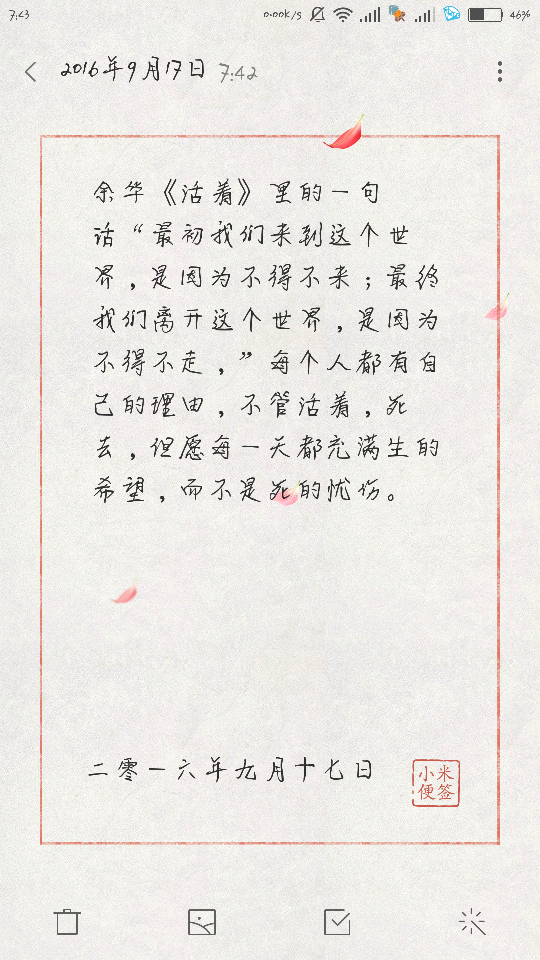 7:43 0.00K/s 46%
2016年9月17日 7:42
余华《活着》里的一句
话“最初我们来到这个世
界，是因为不得不来；最终
我们离开这个世界，是因为
不得不走，”每个人都有自
己的理由，不管活着，死
去，但愿每一天都充满生的
希望，而不是死的忧伤。
二零一六年九月十七日
小米
便签